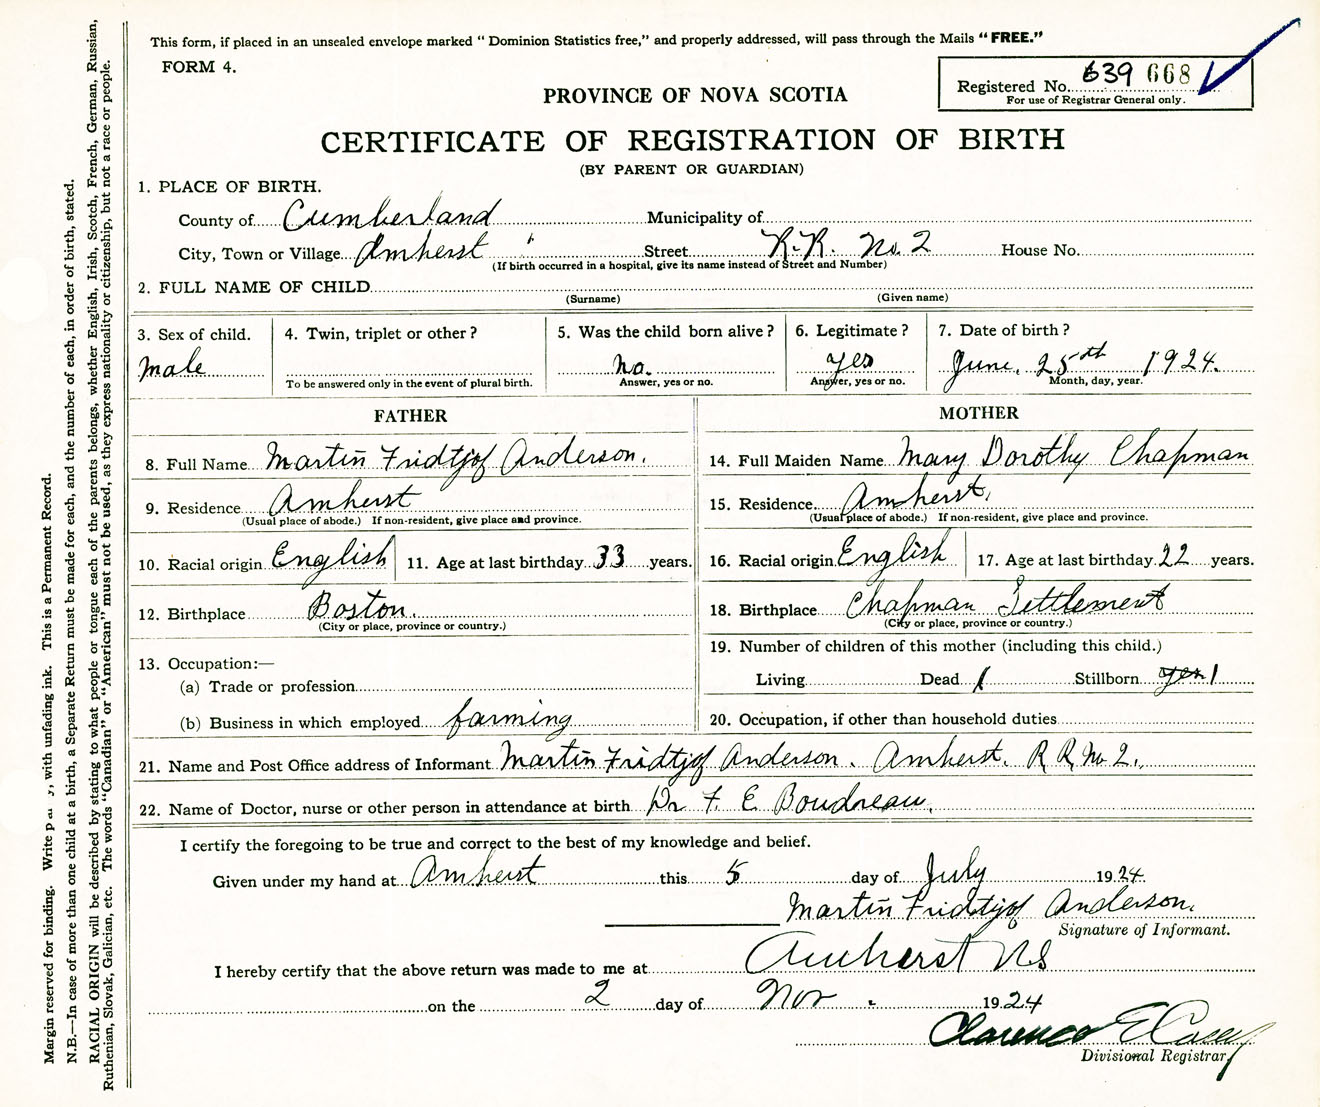 This form, if placed in an unsealed envelope marked " Dominion Statistics free," and properly addressed, will pass through the Mails " FREE."
FORM 4.
Registered No. 639 668
For use of Registrar General only.
PROVINCE OF NOVA SCOTIA
CERTIFICATE OF REGISTRATION OF BIRTH
(BY PARENT OR GUARDIAN)
1. PLACE OF BIRTH.
County of Cumberland Municipality of
City, Town or Village Amherst Street R.R. No. 2 House No.
(If birth occurred in a hospital, give its name instead of Street and Number)
2. FULL NAME OF CHILD
(Surname) (Given name)
3. Sex of child. 4. Twin, triplet or other ? 5. Was the child born alive ? 6. Legitimate ? 7. Date of birth ?
male no. yes June, 25th 1924.
To be answered only in the event of plural birth. Answer, yes or no. Answer, yes or no. Month, day, year.
FATHER MOTHER
8. Full Name Martin Fridtjof Anderson. 14. Full Maiden Name Mary Dorothy Chapman
9. Residence Amherst 15. Residence Amherst,
(Usual place of abode.) If non-resident, give place and province. (Usual place of abode.) If non-resident, give place and province.
10. Racial origin English 11. Age at last birthday 33 years. 16. Racial origin English 17. Age at last birthday 22 years.
12. Birthplace Boston. 18. Birthplace Chapman Settlement
(City or place, province or country.) (City or place, province or country.)
13. Occupation:— 19. Number of children of this mother (including this child.)
(a) Trade or profession Living Dead 1 Stillborn yes 1
(b) Business in which employed farming 20. Occupation, if other than household duties
21. Name and Post Office address of Informant Martin Fridtjof Anderson. Amherst. R R No 2.
22. Name of Doctor, nurse or other person in attendance at birth Dr F. E Boudreau.
I certify the foregoing to be true and correct to the best of my knowledge and belief.
Given under my hand at Amherst this 5 day of July 1924.
Martin Fridtjof Anderson.
Signature of Informant.
I hereby certify that the above return was made to me at Amherst NS
on the 2 day of Nov. 1924
Clarence E Casey
Divisional Registrar
Margin reserved for binding. Write , with unfading ink. This is a Permanent Record.
N.B.—In case of more than one child at a birth, a Separate Return must be made for each, and the number of each, in order of birth, stated.
RACIAL ORIGIN will be described by stating to what people or tongue each of the parents belongs, whether English, Irish, Scotch, French, German, Russian,
Ruthenian, Slovak, Galician, etc. The words "Canadian" or "American" must not be used, as they express nationality or citizenship, but not a race or people.